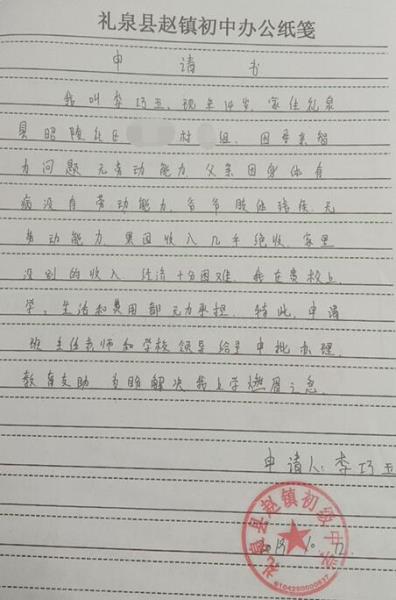 礼泉县赵镇初中办公纸笺
申请书
我叫李巧玉，现年14岁，家住礼泉
县昭陵社区 村 组，因母亲智
力问题无劳动能力，父亲因身体有
病没有劳动能力，爷爷肢体残疾，无
劳动能力，果园收入几乎绝收，家里
没别的收入，经济十分困难，我在贵校上
学，生活和费用都无力承担，特此，申请
班主任老师和学校领导给予审批办理
教育支助，为盼解决我上学燃眉之急。
申请人：李巧玉
10.12
礼泉县赵镇初级中学